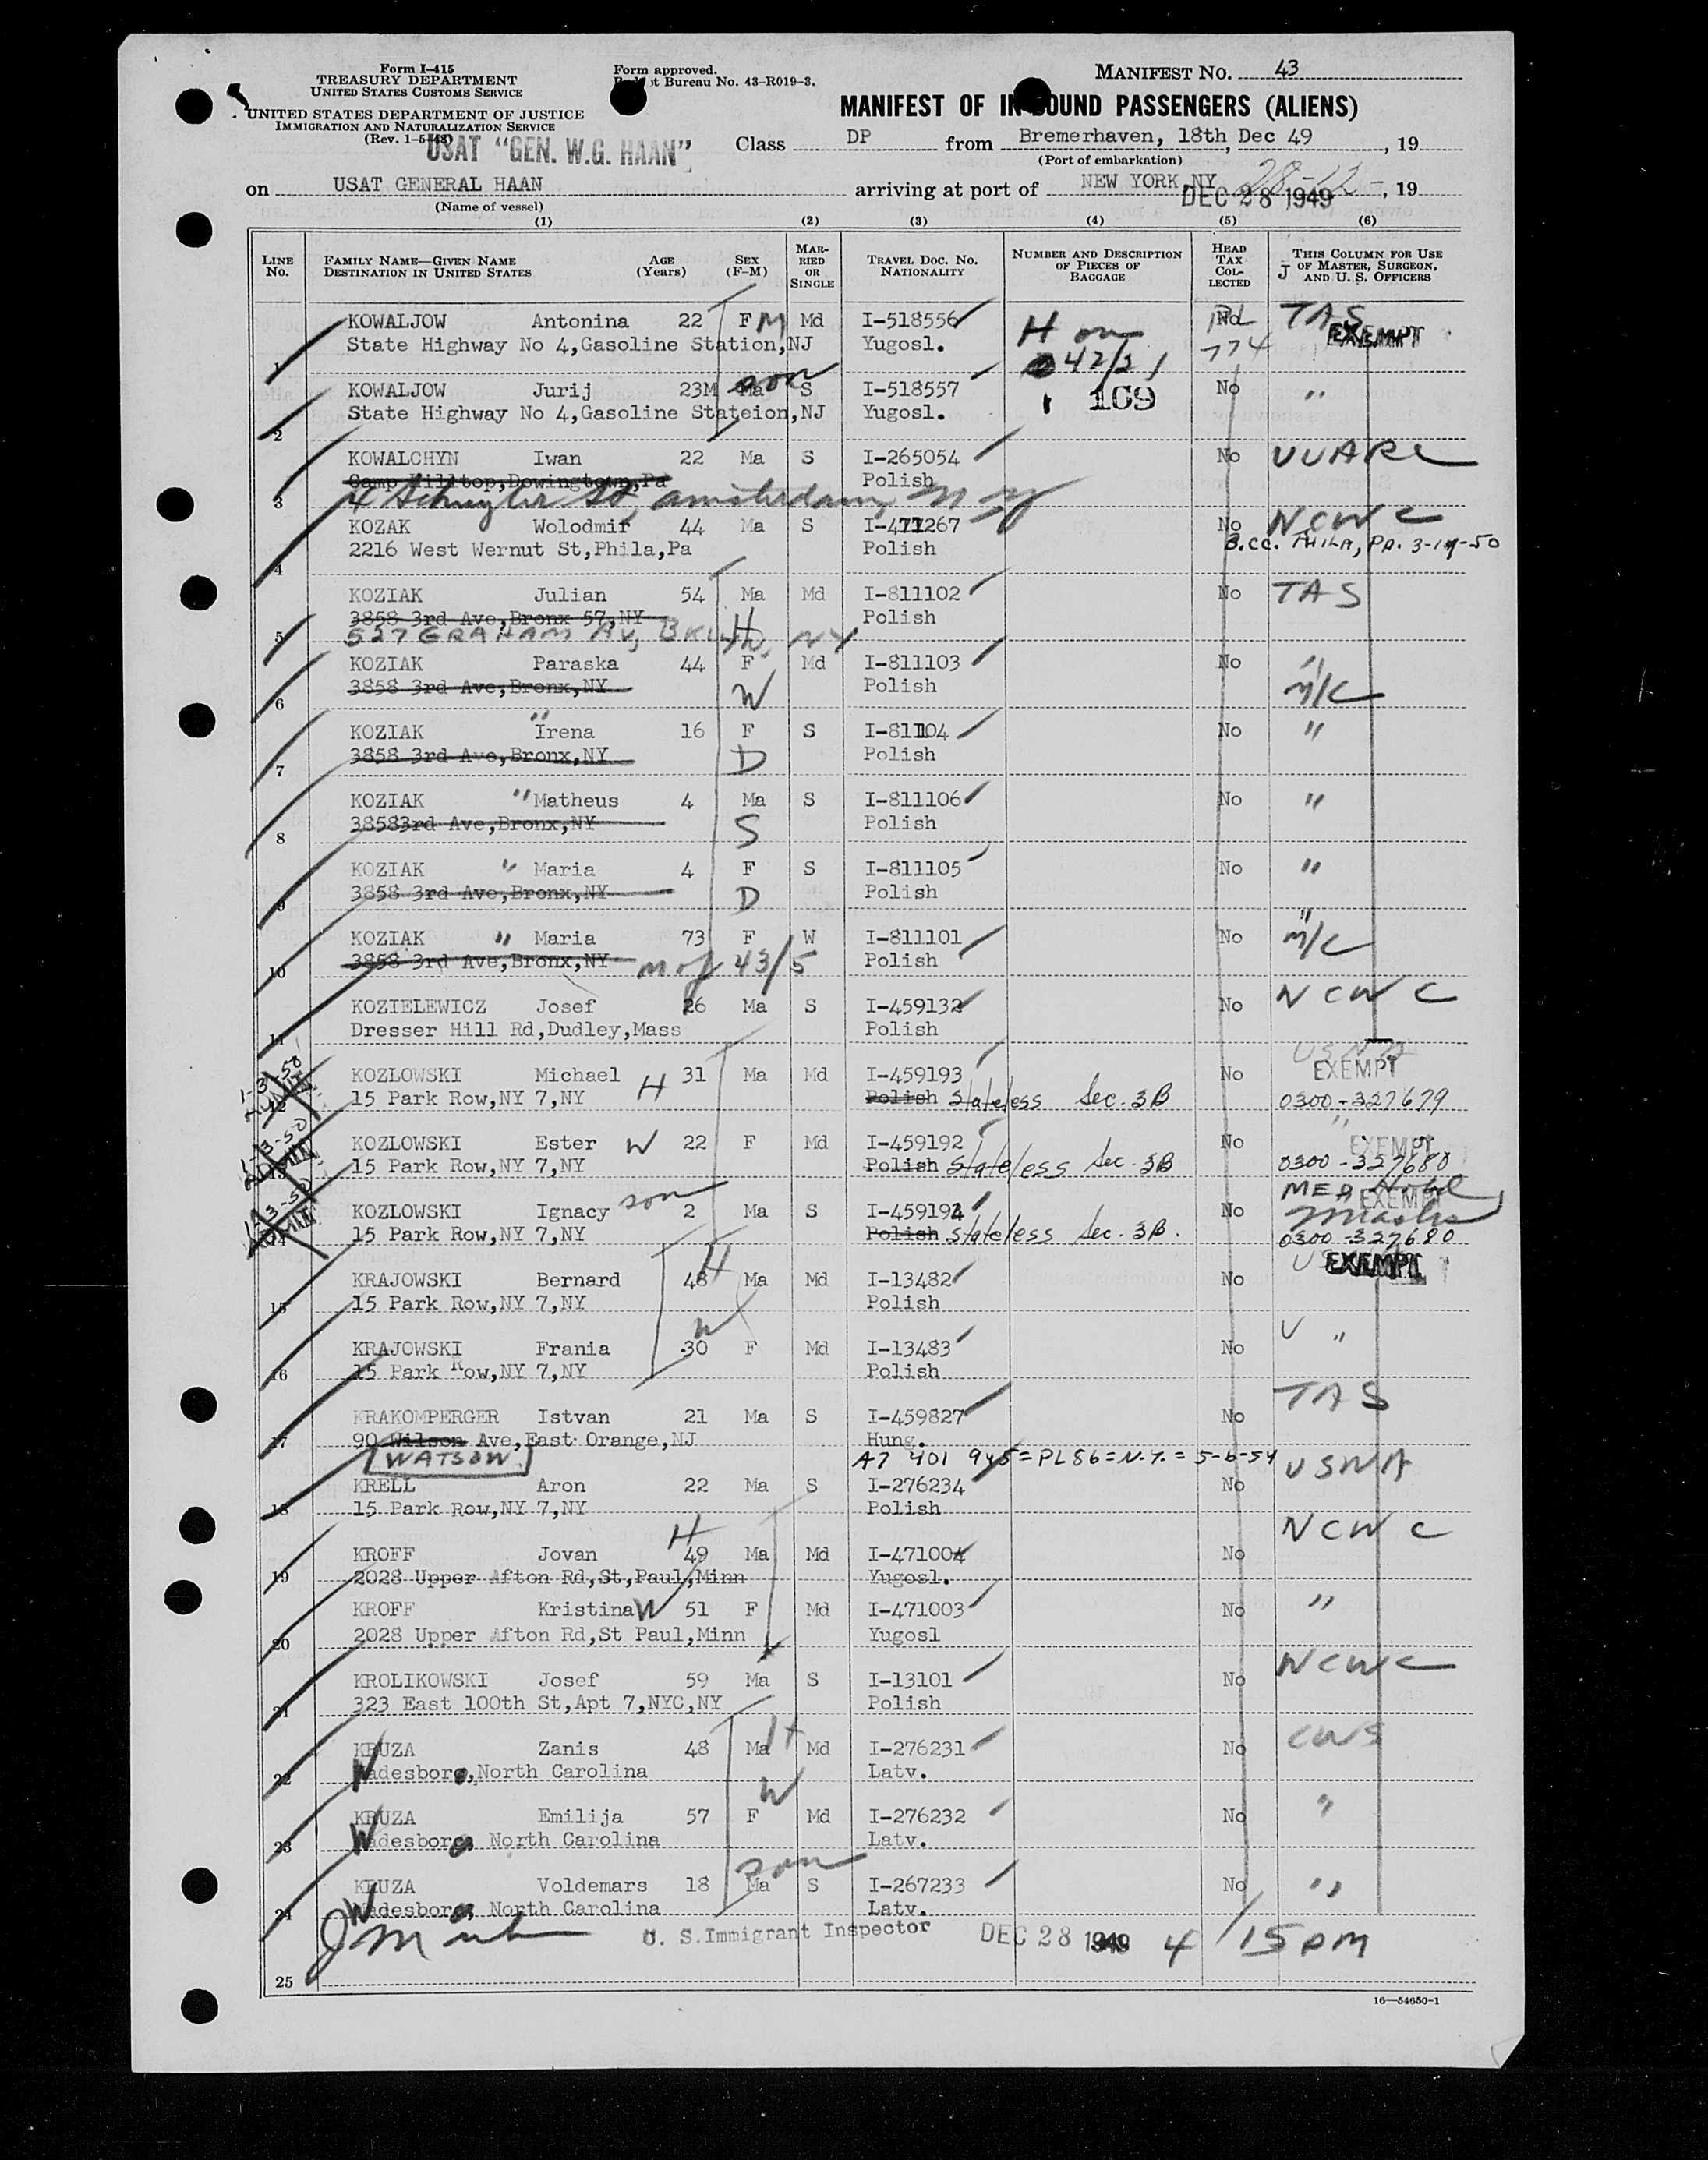 Form I-415
TREASURY DEPARTMENT
UNITED STATES CUSTOMS SERVICE
UNITED STATES DEPARTMENT OF JUSTICE
IMMIGRATION AND NATURALIZATION SERVICE
(Rev. 1-5-48)
Form approved.
Bureau No. 43-R019-3.
MANIFEST No. 43
MANIFEST OF INBOUND PASSENGERS (ALIENS)
USAT "GEN. W.G. HAAN"
Class DP from Bremerhaven, 18th Dec 49, 19
(Port of embarkation)
on USAT GENERAL HAAN arriving at port of NEW YORK,NY 28-12-, 19
DEC 28 1949
(Name of vessel)
(1) (2) (3) (4) (5) (6)
LINE No. FAMILY NAME—GIVEN NAME DESTINATION IN UNITED STATES AGE (Years) SEX (F-M) MARRIED OR SINGLE TRAVEL DOC. No. NATIONALITY NUMBER AND DESCRIPTION OF PIECES OF BAGGAGE HEAD TAX COLLECTED THIS COLUMN FOR USE OF MASTER, SURGEON, AND U. S. OFFICERS
KOWALJOW Antonina 22 F M Md I-518556 H on No TAS EXEMPT
1 State Highway No 4,Gasoline Station,NJ Yugosl. 42/21 774
KOWALJOW Jurij 23M Ma son S I-518557 1 169 No "
2 State Highway No 4,Gasoline Stateion,NJ Yugosl.
KOWALCHYN Iwan 22 Ma S I-265054 No UUARC
Camp Hilltop,Dowingtown,Pa Polish
3 4 Schuyler St, Amsterdam, N Y
KOZAK Wolodmir 44 Ma S I-471267 No NCWC
4 2216 West Wernut St,Phila,Pa Polish B.CC. PHILA, PA. 3-14-50
KOZIAK Julian 54 Ma Md I-811102 No TAS
3858 3rd Ave,Bronx 57,NY H Polish
5 527 GRAHAM AV, BKLYN, NY
KOZIAK Paraska 44 F Md I-811103 No "
6 3858 3rd Ave,Bronx,NY W Polish M/C
KOZIAK " Irena 16 F S I-811104 No "
7 3858 3rd Ave,Bronx,NY D Polish
KOZIAK " Matheus 4 Ma S I-811106 No "
8 38583rd Ave,Bronx,NY S Polish
KOZIAK " Maria 4 F S I-811105 No "
9 3858 3rd Ave,Bronx,NY D Polish
KOZIAK " Maria 73 F W I-811101 No "
10 3858 3rd Ave,Bronx,NY M of 43/5 Polish M/C
KOZIELEWICZ Josef 26 Ma S I-459132 No NCWC
11 Dresser Hill Rd,Dudley,Mass Polish
KOZLOWSKI Michael H 31 Ma Md I-459193 No USNA EXEMPT
12 15 Park Row,NY 7,NY Polish Stateless Sec. 3B 0300-327679
KOZLOWSKI Ester W 22 F Md I-459192 No " EXEMPT
13 15 Park Row,NY 7,NY Polish Stateless Sec. 3B 0300-327680
KOZLOWSKI Ignacy son 2 Ma S I-459194 No EXEMPT
14 15 Park Row,NY 7,NY Polish Stateless Sec. 3B. 0300-327680
KRAJOWSKI Bernard 48 H Ma Md I-13482 No EXEMPT
15 15 Park Row,NY 7,NY Polish
KRAJOWSKI Frania W 30 F Md I-13483 No "
16 15 Park Row,NY 7,NY Polish
KRAKOMPERGER Istvan 21 Ma S I-459827 No TAS
17 90 Wilson Ave,East Orange,NJ Hung.
[WATSON] A7 401 945=PL86=N.Y.=5-6-54
KRELL Aron 22 Ma S I-276234 No USNA
18 15 Park Row,NY 7,NY Polish
KROFF Jovan H 49 Ma Md I-471004 No NCWC
19 2028 Upper Afton Rd,St,Paul,Minn Yugosl.
KROFF Kristina W 51 F Md I-471003 No "
20 2028 Upper Afton Rd,St Paul,Minn Yugosl
KROLIKOWSKI Josef 59 Ma S I-13101 No NCWC
21 323 East 100th St,Apt 7,NYC,NY Polish
KRUZA Zanis 48 Ma H Md I-276231 No CWS
22 Wadesboro,North Carolina Latv.
KRUZA Emilija 57 F W Md I-276232 No "
23 Wadesboro, North Carolina Latv.
KRUZA Voldemars 18 Ma son S I-267233 No "
24 Wadesboro, North Carolina Latv.
U. S.Immigrant Inspector DEC 28 1949 4/15 PM
25
16—54650-1